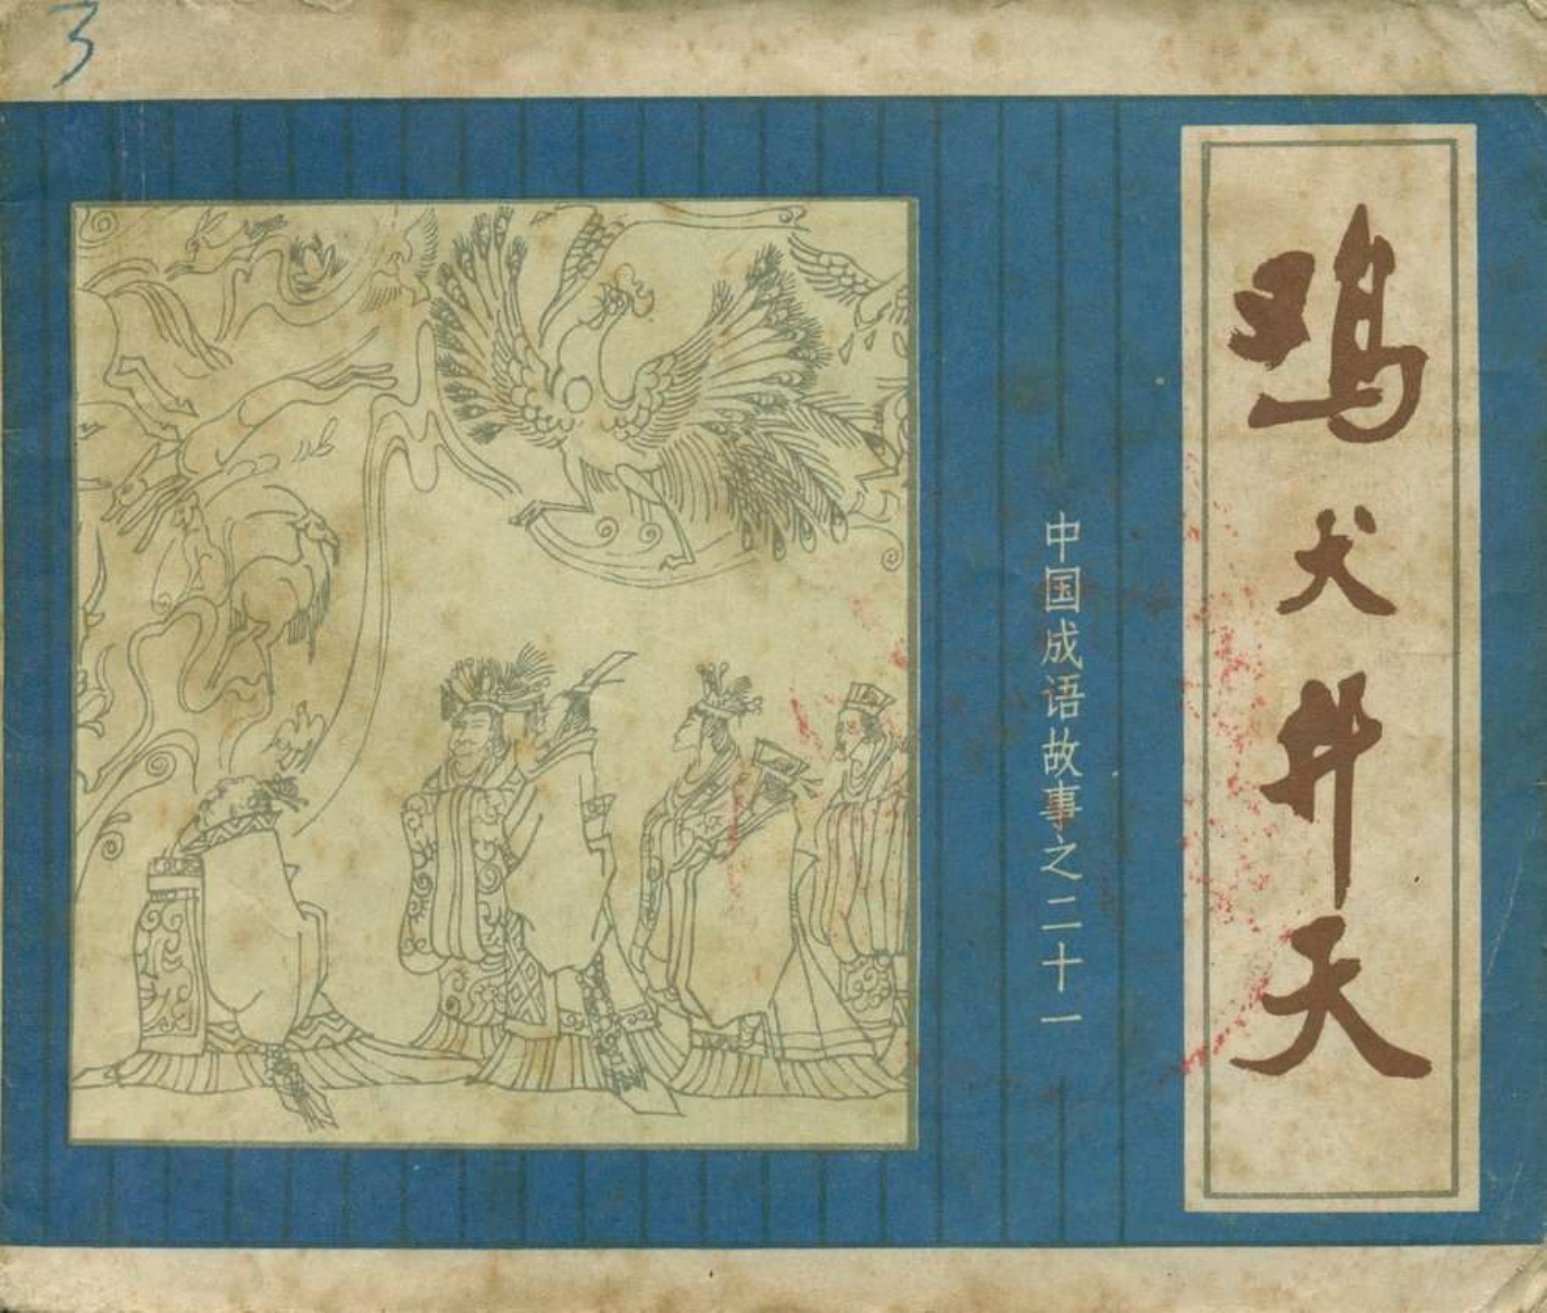 鸡犬升天
中国成语故事之二十一
3